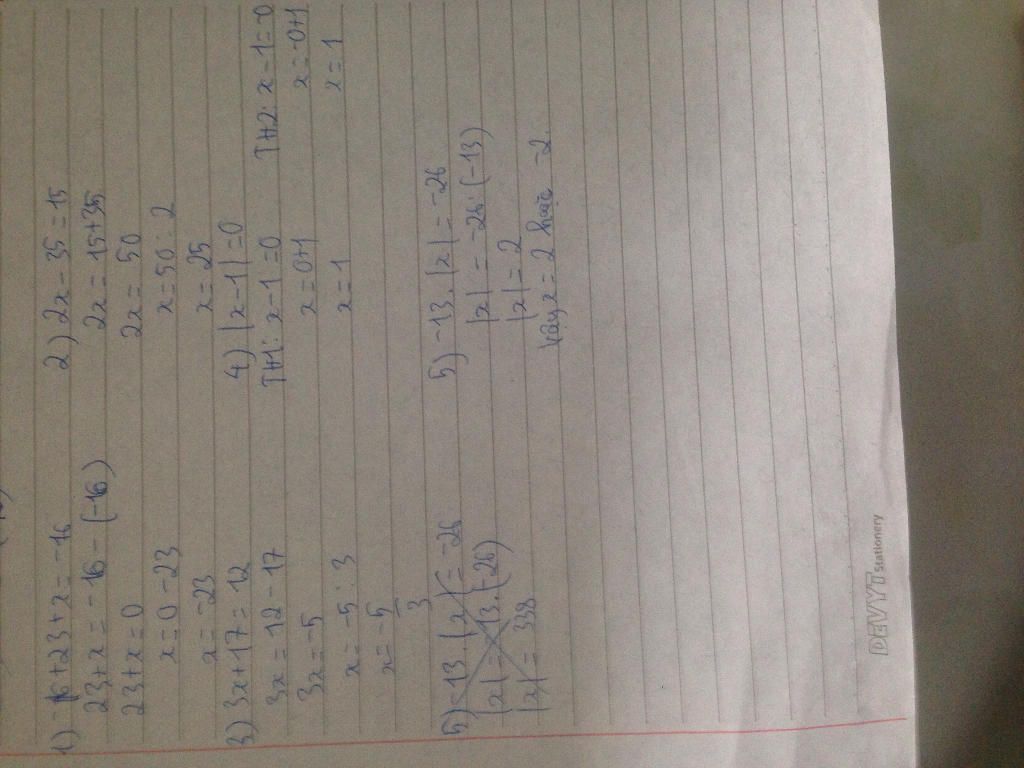 1) -16 + 23 + x = -16
23 + x = -16 - (-16)
23 + x = 0
x = 0 - 23
x = -23
2) 2x - 35 = 15
2x = 15 + 35
2x = 50
x = 50 : 2
x = 25
3) 3x + 17 = 12
3x = 12 - 17
3x = -5
x = -5 : 3
x = -5/3
4) |x - 1| = 0
TH1: x - 1 = 0
x = 0 + 1
x = 1
TH2: x - 1 = -0
x = -0 + 1
x = 1
5) -13 . |x| = -26
|x| = 13 . (-26)
|x| = 338
5) -13 . |x| = -26
|x| = -26 : (-13)
|x| = 2
Vậy x = 2 hoặc -2.
DEVYT Stationery